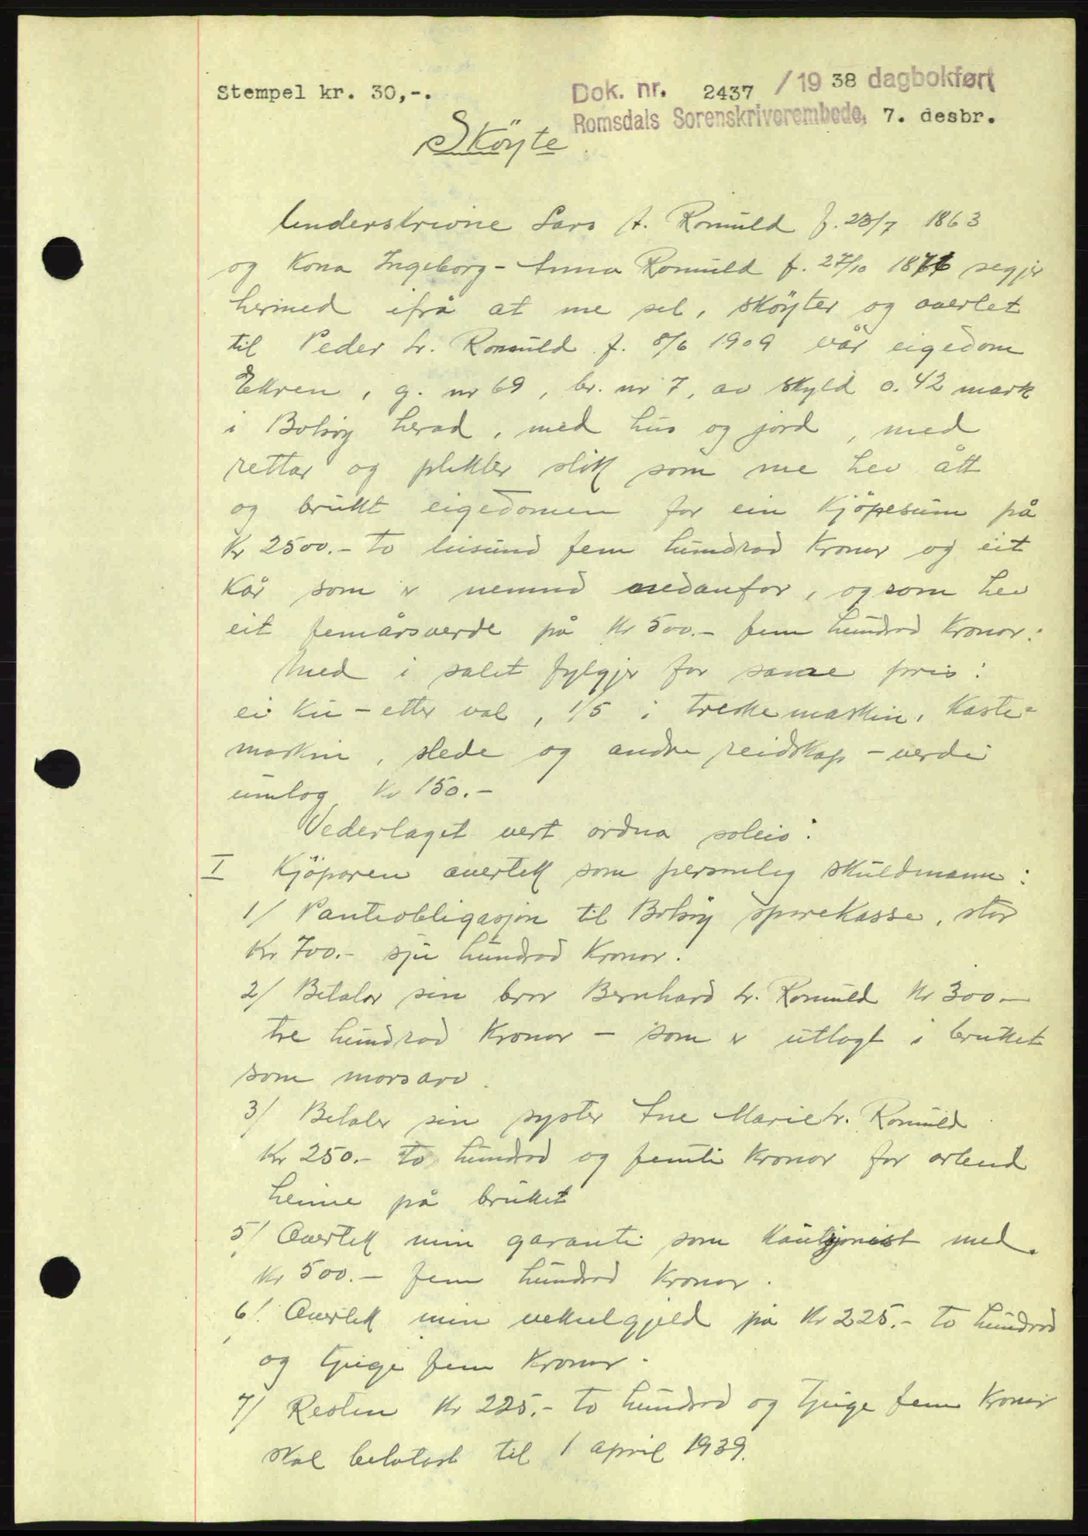 Stempel kr. 30,-.
Dok. nr. 2437 / 19 38 dagbokført
Romsdals Sorenskriverembede, 7. desbr.
Sköyte
Underskrivne Lars A. Romuld f. 23/7 1863
og kona Ingeborg-Anna Romuld f. 27/10 1876 segjer
hermed ifrå at me sel, sköyter og overlet
til Peder L. Romuld f. 8/6 1909 vår eigedom
Ekren, g. nr 69, br. nr 7, av skyld 0.42 mark
i Bolsöy herad, med hus og jord, med
rettar og plikter slik som me hev ått
og brukt eigedomen for ein kjöpesum på
Kr 2500.- to tusund fem hundrad kronor og eit
kår som er nemnd nedanfor, og som hev
eit femårsverde på Kr 500.- fem hundrad kronor.
Med i salet fylgjer for same pris:
ei ku - etter val, 1/5 i treskemaskin, kaste-
maskin, slede og andre reidskap - verdi
umlag Kr 150.-
Vederlaget vert ordna soleis:
I Kjöparen overtek som personleg skuldmann:
1/ Panteobligasjon til Bolsöy sparekasse, stor
Kr 700.- sju hundrad kronor.
2/ Betaler sin bror Bernhard L. Romuld Kr 300.-
tre hundrad kronor - som er utlagt i bruket
som morsarv.
3/ Betaler sin syster Ane Marie L. Romuld
Kr 250.- to hundrad og femti kronor for arbeid
heime på bruket
5/ Overtek min garanti som kausjonist med
Kr 500.- fem hundrad kronor.
6/ Overtek min vekselgjeld på Kr 225.- to hundrad
og tjuge fem kronor.
7/ Resten Kr 225.- to hundrad og tjuge fem kronor
skal betalast til 1 april 1939.